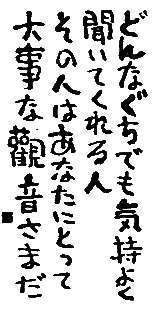 どんなぐちでも気持よく
聞いてくれる人
その人はあなたにとって
大事な觀音さまだ